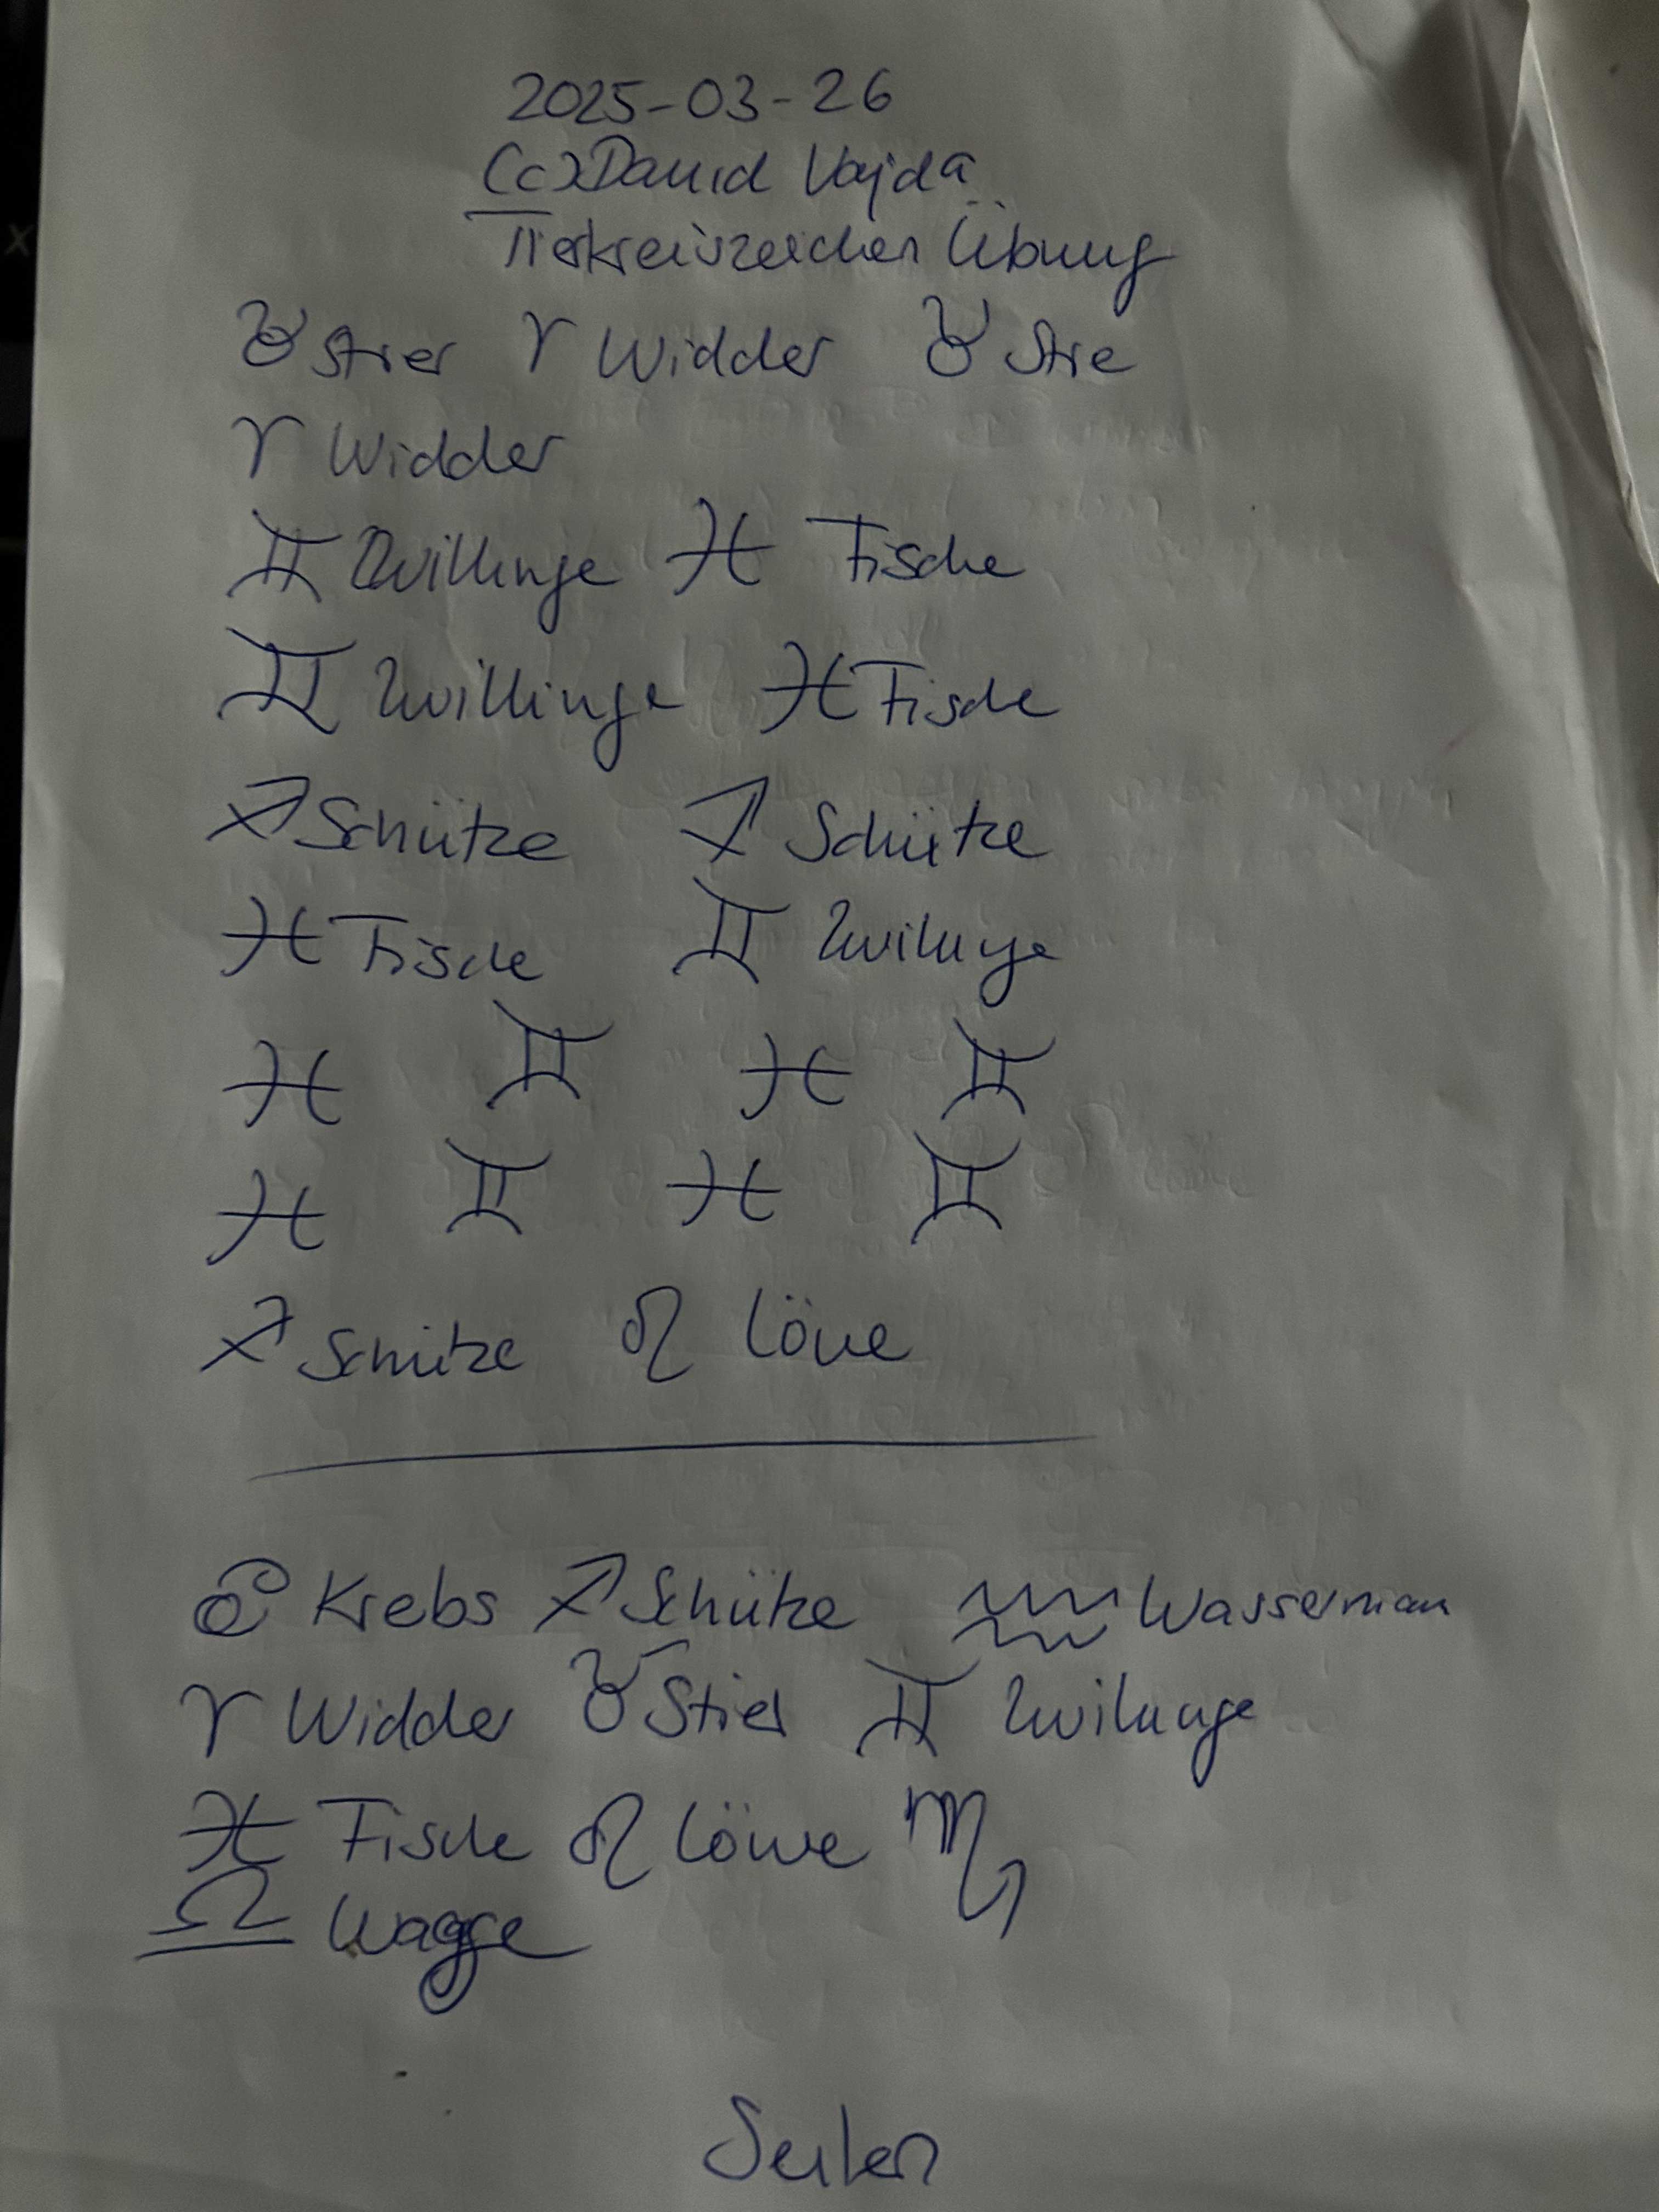 2025-03-26
(c) David Vajda
Tierkreiszeichen Übung
♉ Stier ♈ Widder ♉ Stie
♈ Widder
♊ Zwillinge ♓ Fische
♊ Zwillinge ♓ Fische
♐ Schütze ♐ Schütze
♓ Fische ♊ Zwillinge
♓ ♊ ♓ ♊
♓ ♊ ♓ ♊
♐ Schütze ♌ Löwe
♋ Krebs ♐ Schütze ♒ Wasserman
♈ Widder ♉ Stier ♊ Zwillinge
♓ Fische ♌ Löwe ♏
♎ Waage